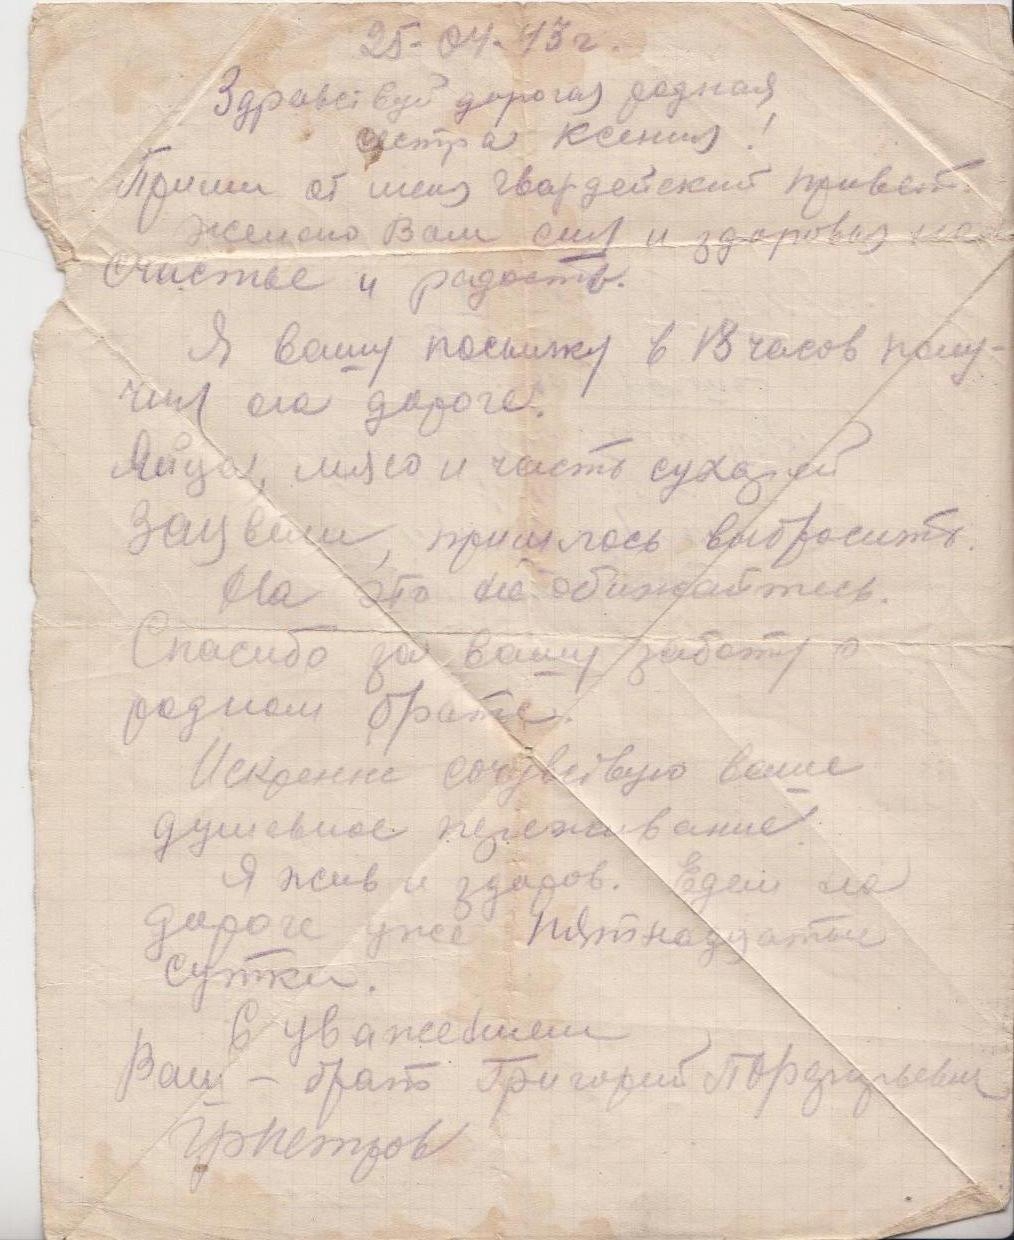 25-04-43 г.
Здравствуй дорогая родная
сестра Ксения!
Прими от меня гвардейский привет.
Желаю Вам сил и здоровья
счастье и радость.
Я вашу посылку в 13 часов полу-
чил на дороге.
Яйца, мясо и часть сухарей
зацвели, пришлось выбросить.
На это не обижайтесь.
Спасибо за вашу заботу о
родном брате.
Искренне сочувствую ваше
душевное переживание!
Я жив и здоров. Едем на
дороге уже пятнадцатые
сутки.
С уважением
Ваш – брат Григорий